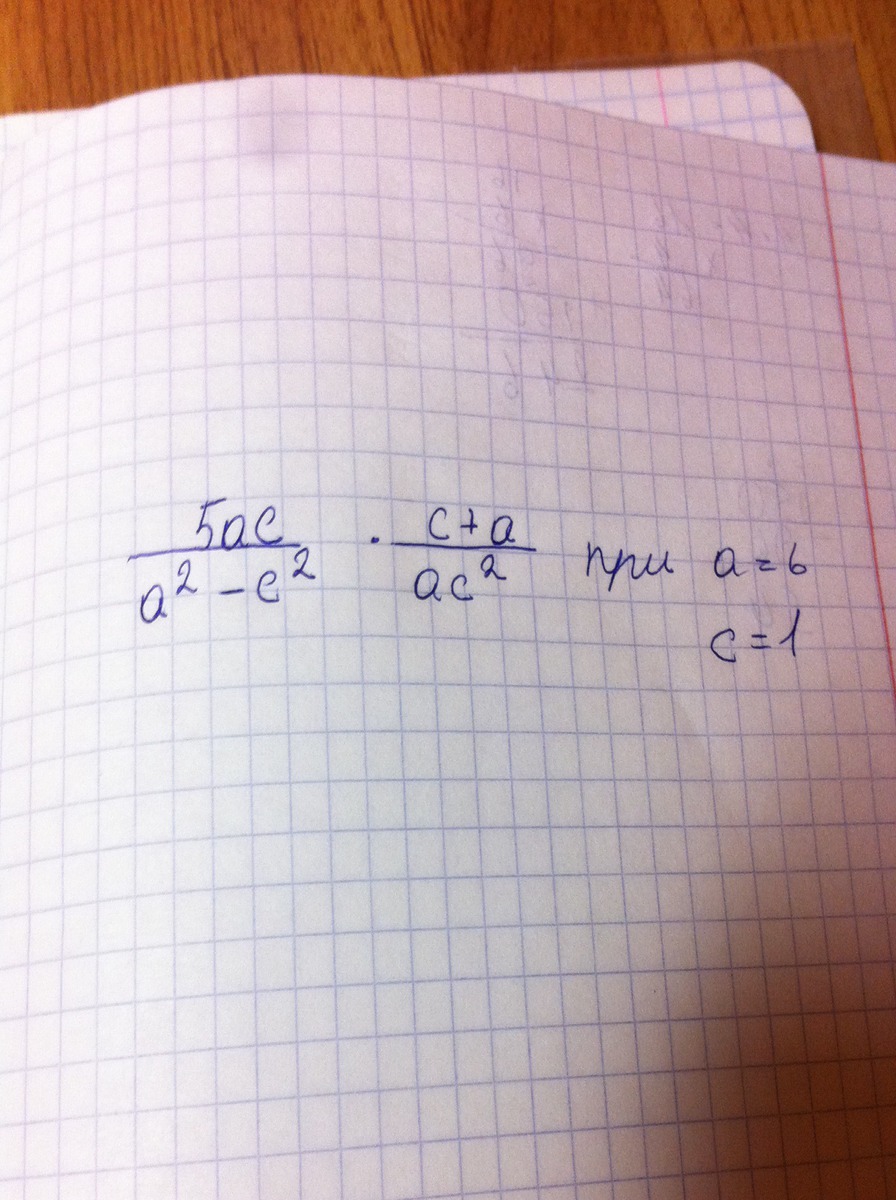 5ac / a² - c² · c+a / ac² при a=6
c=1